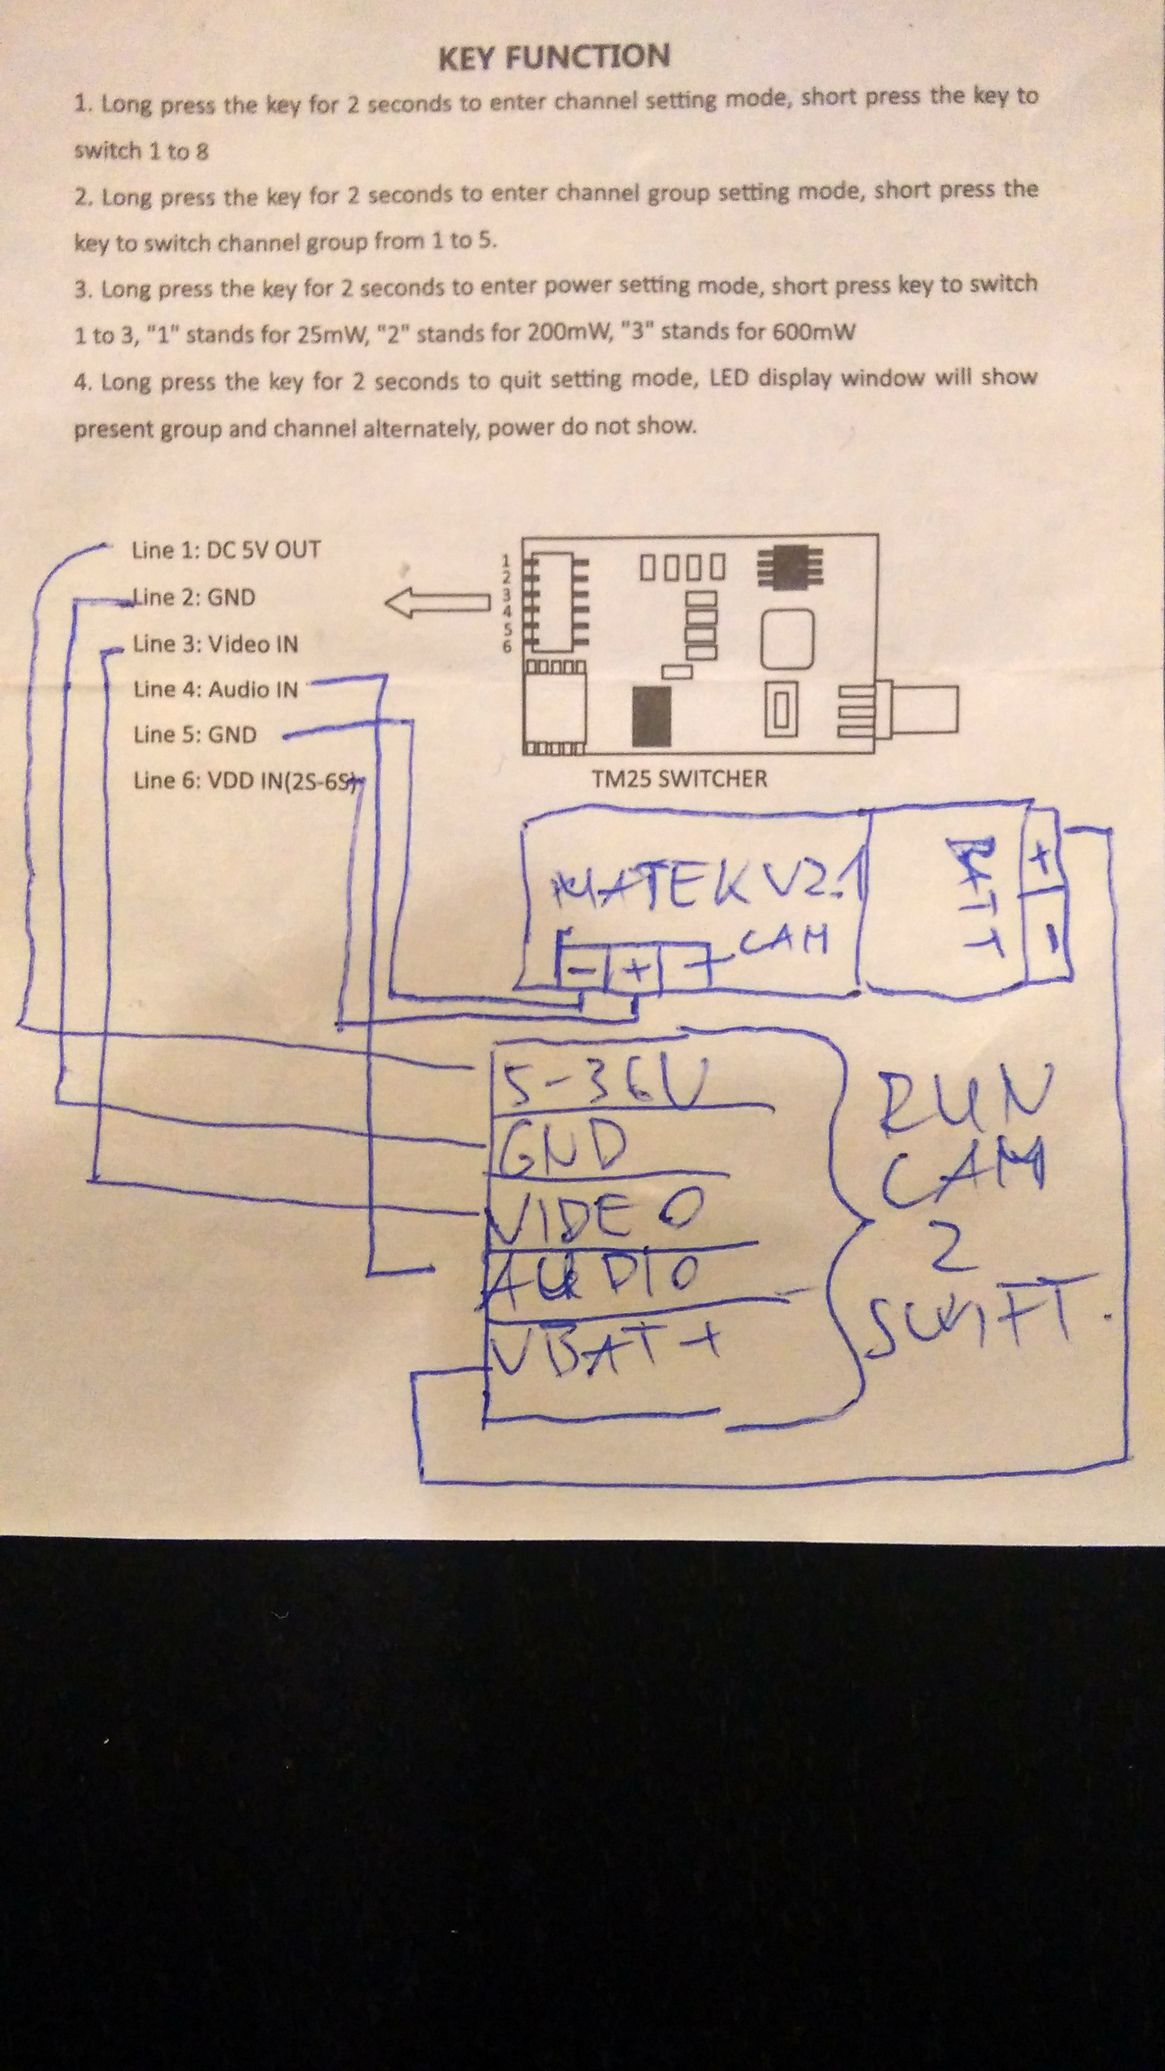 KEY FUNCTION
1. Long press the key for 2 seconds to enter channel setting mode, short press the key to
switch 1 to 8
2. Long press the key for 2 seconds to enter channel group setting mode, short press the
key to switch channel group from 1 to 5.
3. Long press the key for 2 seconds to enter power setting mode, short press key to switch
1 to 3, "1" stands for 25mW, "2" stands for 200mW, "3" stands for 600mW
4. Long press the key for 2 seconds to quit setting mode, LED display window will show
present group and channel alternately, power do not show.
Line 1: DC 5V OUT
Line 2: GND
Line 3: Video IN
Line 4: Audio IN
Line 5: GND
Line 6: VDD IN(2S-6S)
1
2
3
4
5
6
TM25 SWITCHER
MATEK V2.1
- + CAM
+
-
5-36V
GND
VIDEO
AUDIO
VBAT+
RUN
CAM
2
SWIFT